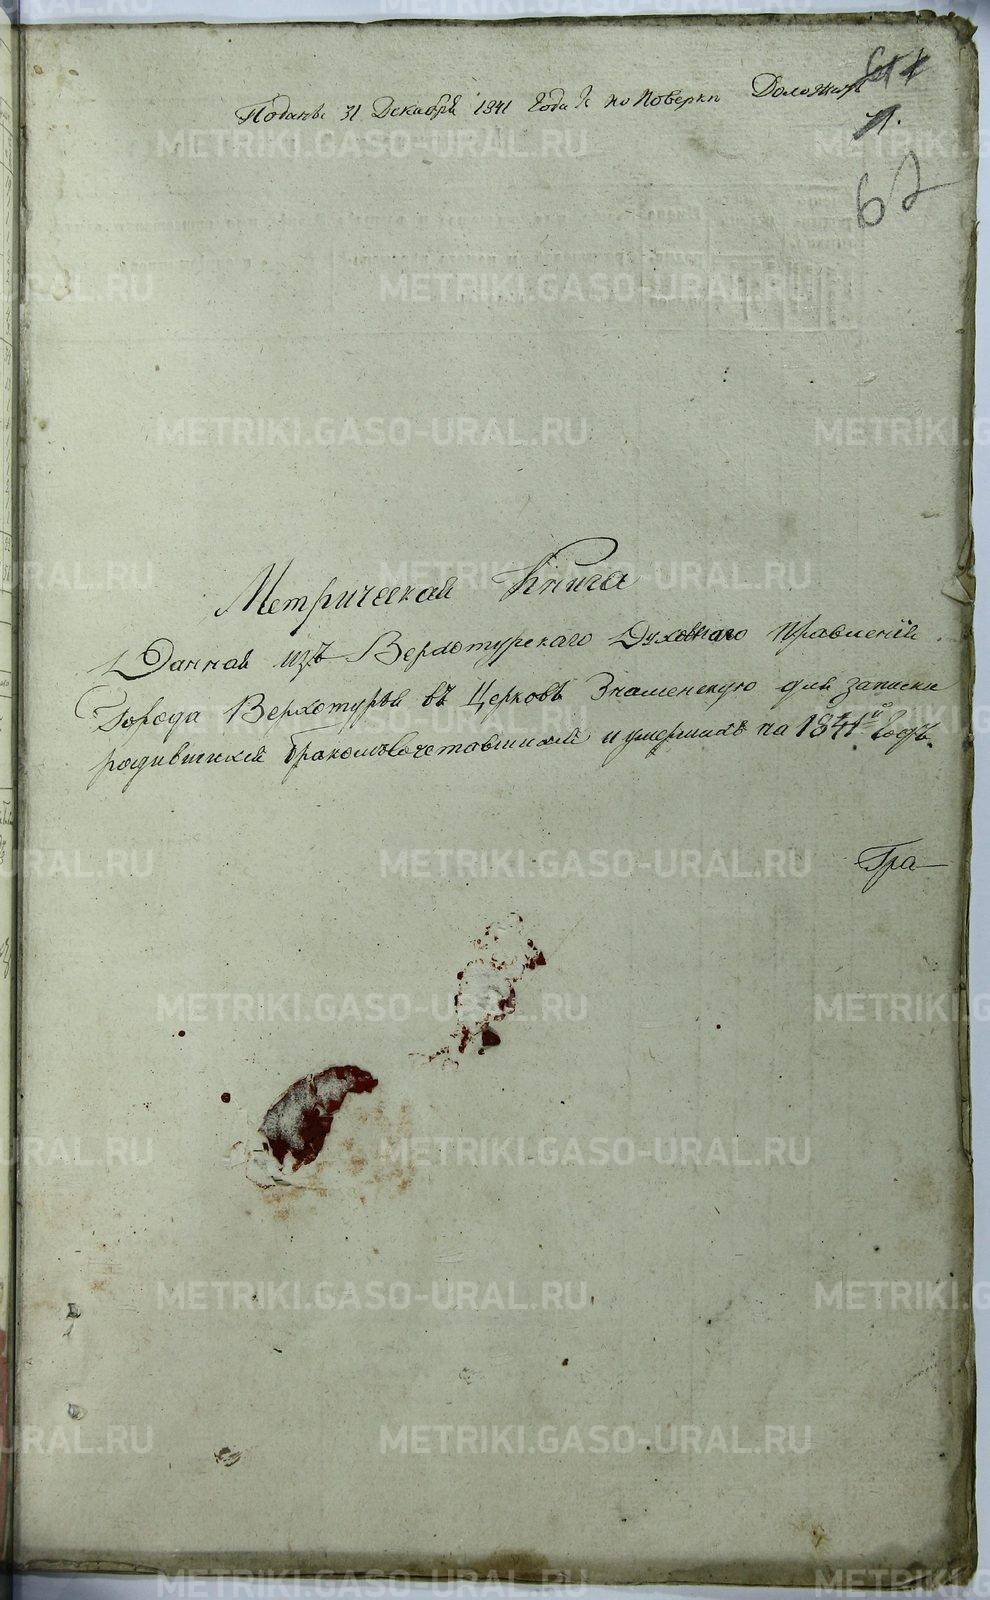 Поданъ 31 Декабря 1841 Года И по Поверки Доложить
62
Метрическая Книга
Данная изъ Верхотурскаго Духовнаго Правленія
Города Верхотурья въ Церковь Знаменскую для записки
родившихся бракомъ сочетавшихся и умершихъ на 1841й Годъ.
Гра
METRIKI.GASO-URAL.RU